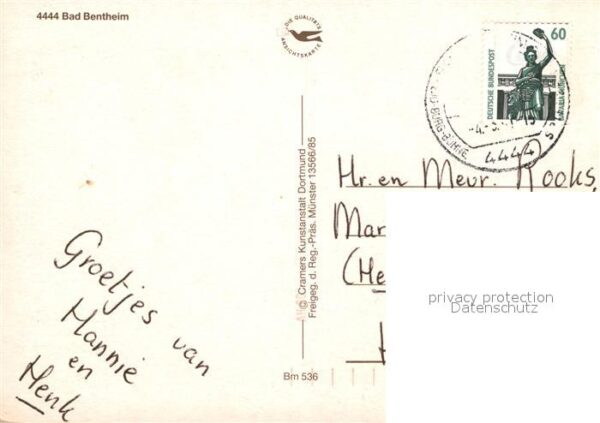 4444 Bad Bentheim
DIE QUALITÄTS
ANSICHTSKARTE
60
DEUTSCHE BUNDESPOST
4444
BURG-BÜHNE
Hr. en Mevr. Kooks,
Mar
(He
privacy protection
Datenschutz
© Cramers Kunstanstalt Dortmund
Freigeg. d. Reg.-Präs. Münster 13566/85
Bm 536
Groetjes van
Hannie
en
Henk